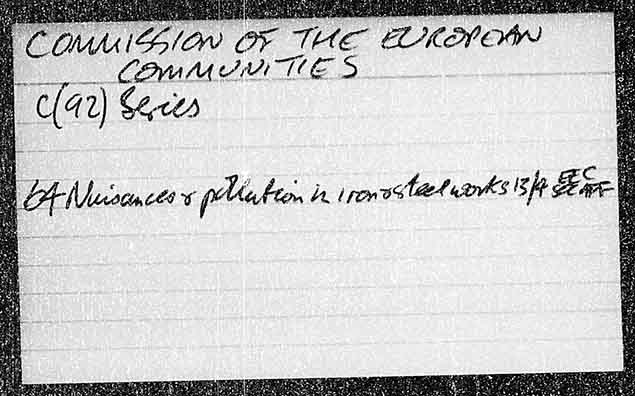 COMMISSION OF THE EUROPEAN
COMMUNITIES
C(92) Series
64 Nuisances & pollution in iron & steel works 13/4 EEC